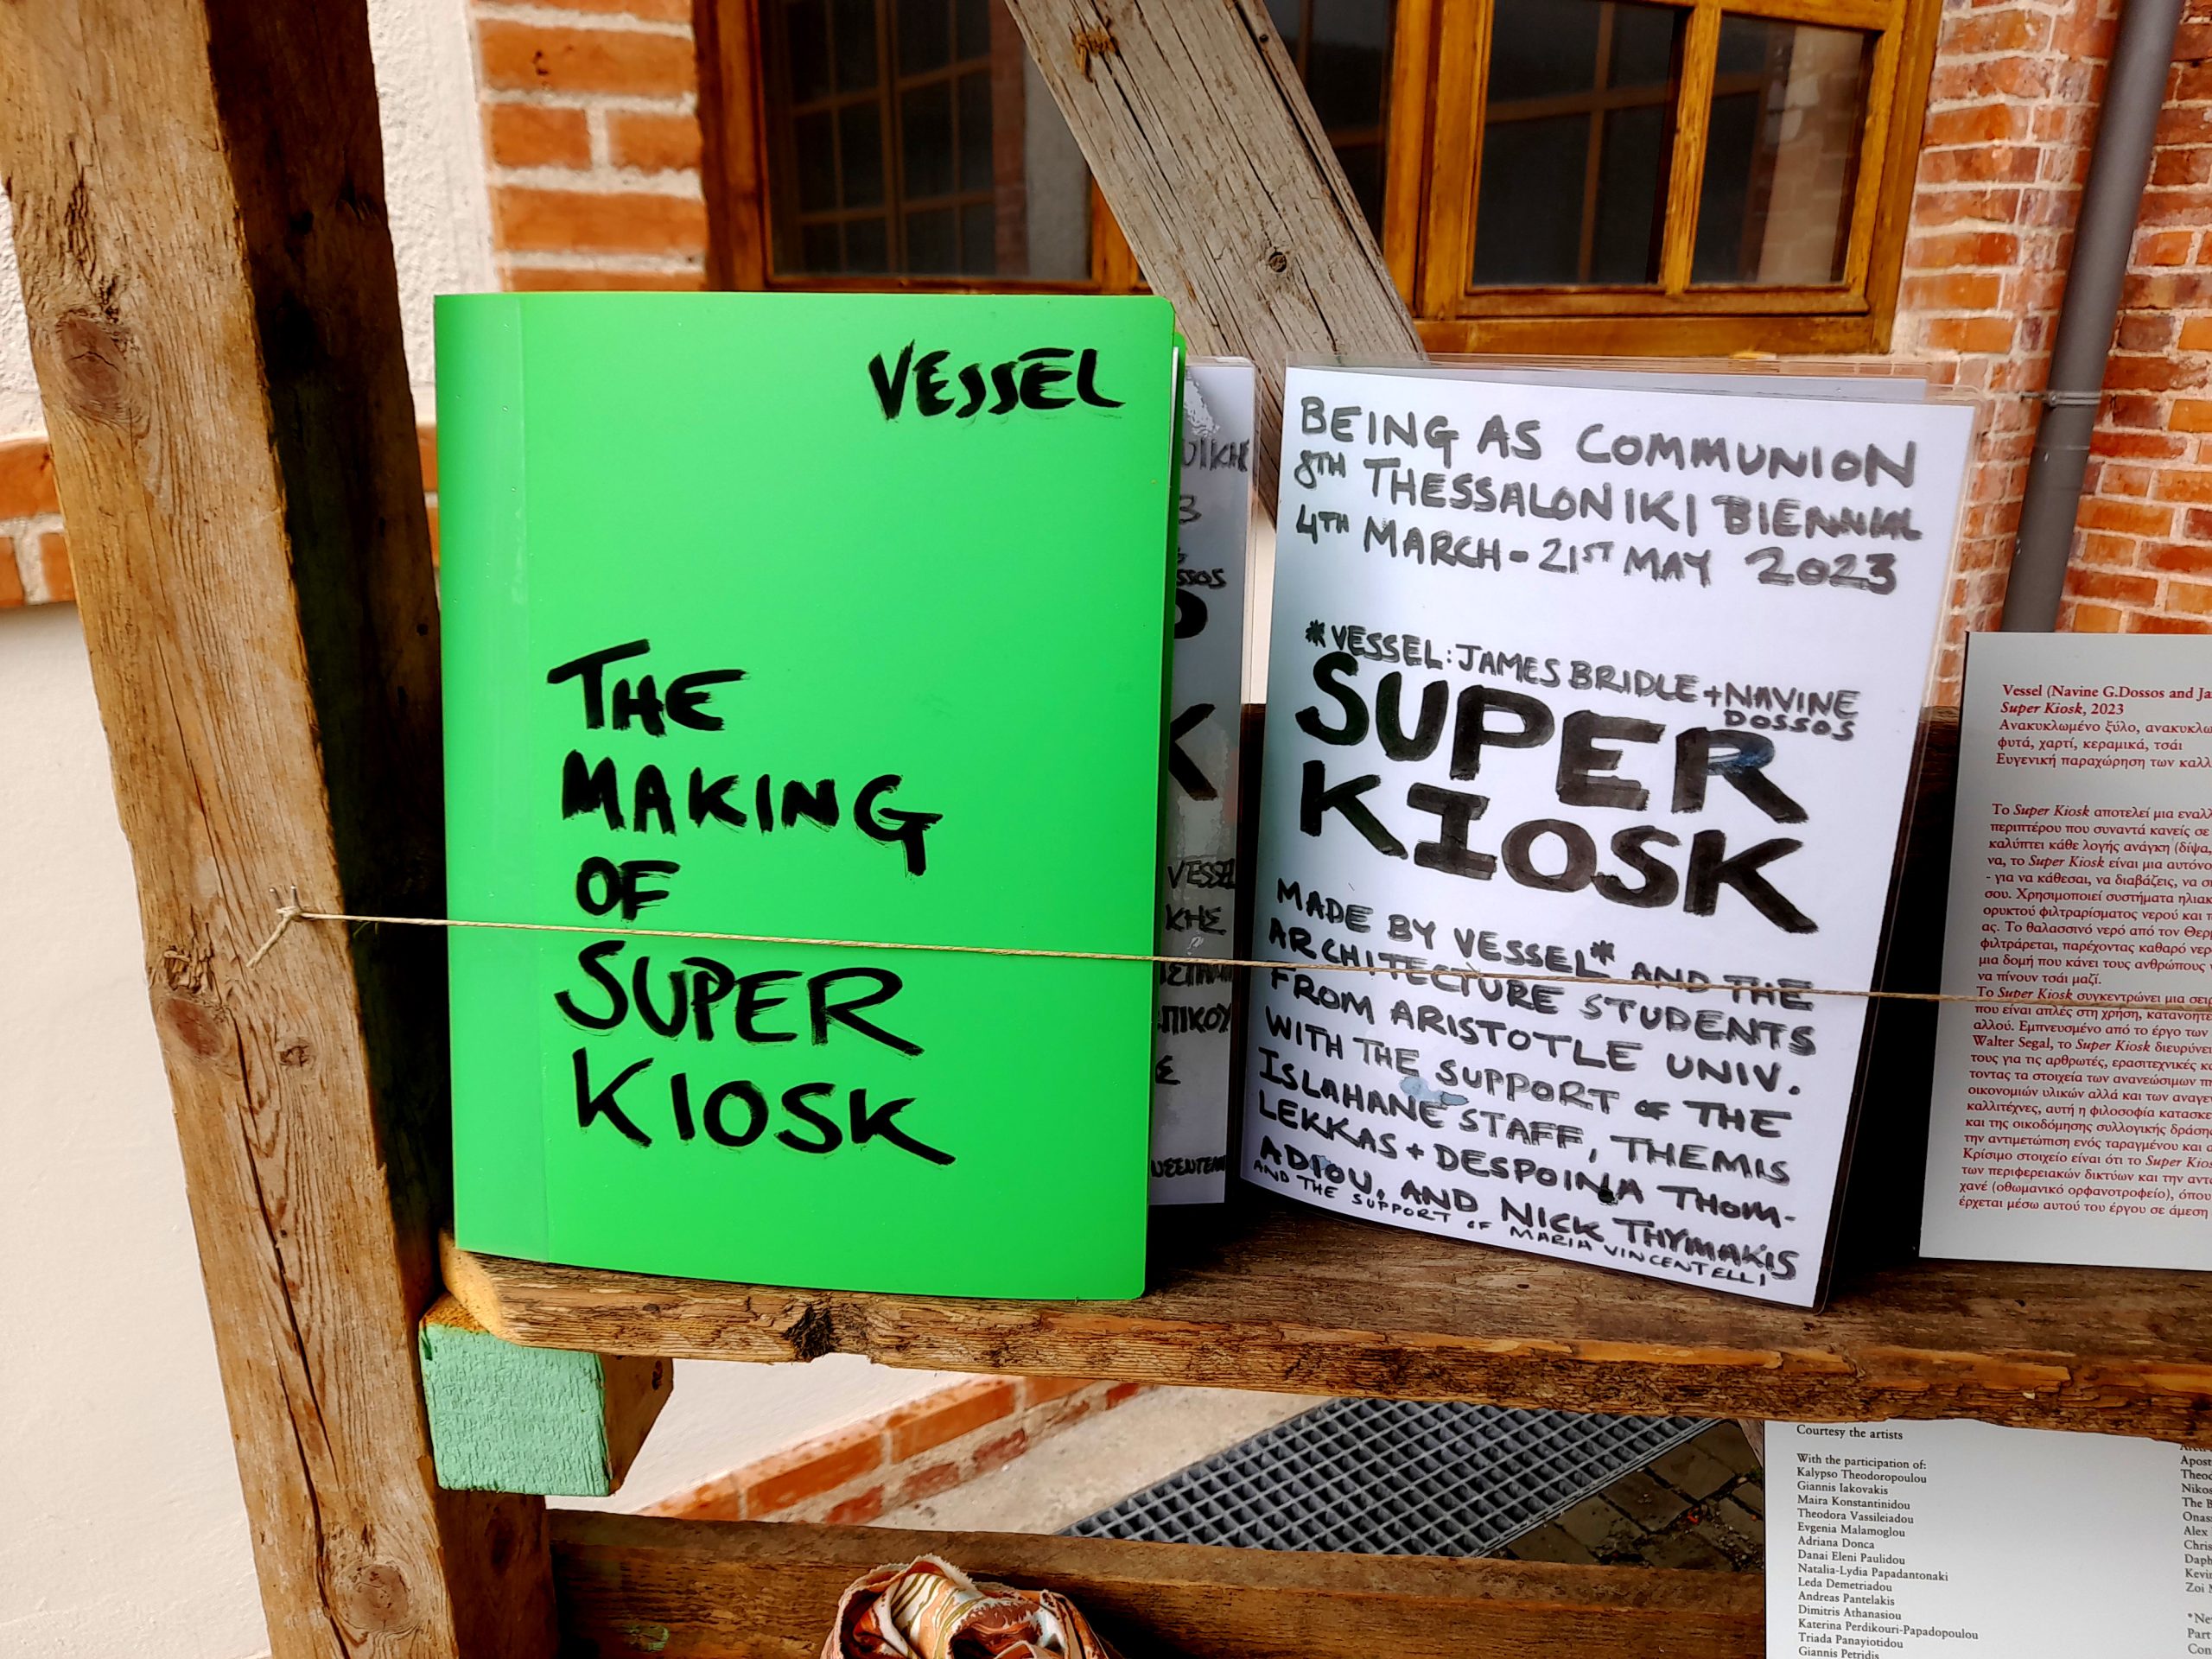 VESSEL
THE
MAKING
OF
SUPER
KIOSK
BEING AS COMMUNION
8TH THESSALONIKI BIENNIAL
4TH MARCH - 21ST MAY 2023
*VESSEL: JAMES BRIDLE + NAVINE
DOSSOS
SUPER
KIOSK
MADE BY VESSEL* AND THE
ARCHITECTURE STUDENTS
FROM ARISTOTLE UNIV.
WITH THE SUPPORT OF THE
ISLAHANE STAFF, THEMIS
LEKKAS + DESPOINA THOM-
ADIOU, AND NICK THYMAKIS
AND THE SUPPORT OF MARIA VINCENTELLI
VESSEL
ΚΗΣ
Vessel (Navine G.Dossos and Ja
Super Kiosk, 2023
Ανακυκλωμένο ξύλο, ανακυκλω
φυτά, χαρτί, κεραμικά, τσάι
Ευγενική παραχώρηση των καλλ
Το Super Kiosk αποτελεί μια εναλλ
περιπτέρου που συναντά κανείς σε
καλύπτει κάθε λογής ανάγκη (δίψα,
να, το Super Kiosk είναι μια αυτόνο
- για να κάθεσαι, να διαβάζεις, να σ
σου. Χρησιμοποιεί συστήματα ηλιακ
ορυκτού φιλτραρίσματος νερού και τ
ας. Το θαλασσινό νερό από τον Θερ
φιλτράρεται, παρέχοντας καθαρό νερ
μια δομή που κάνει τους ανθρώπους
να πίνουν τσάι μαζί.
Το Super Kiosk συγκεντρώνει μια σει
που είναι απλές στη χρήση, κατανοητέ
αλλού. Εμπνευσμένο από το έργο των
Walter Segal, το Super Kiosk διευρύνε
τους για τις αρθρωτές, ερασιτεχνικές κ
τοντας τα στοιχεία των ανανεώσιμων π
οικονομιών υλικών αλλά και των αναγε
καλλιτέχνες, αυτή η φιλοσοφία κατασκε
και της οικοδόμησης συλλογικής δράση
την αντιμετώπιση ενός ταραγμένου και α
Κρίσιμο στοιχείο είναι ότι το Super Kios
των περιφερειακών δικτύων και την αντ
χανέ (οθωμανικό ορφανοτροφείο), όπου
έρχεται μέσω αυτού του έργου σε άμεση
Courtesy the artists
With the participation of:
Kalypso Theodoropoulou
Giannis Iakovakis
Maira Konstantinidou
Theodora Vassileiadou
Evgenia Malamoglou
Adriana Donca
Danai Eleni Paulidou
Natalia-Lydia Papadantonaki
Leda Demetriadou
Andreas Pantelakis
Dimitris Athanasiou
Katerina Perdikouri-Papadopoulou
Triada Panayiotidou
Giannis Petridis
Apost
Theod
Nikos
The B
Onas
Alex
Chris
Daph
Kevi
Zoi
*Ne
Part
Con